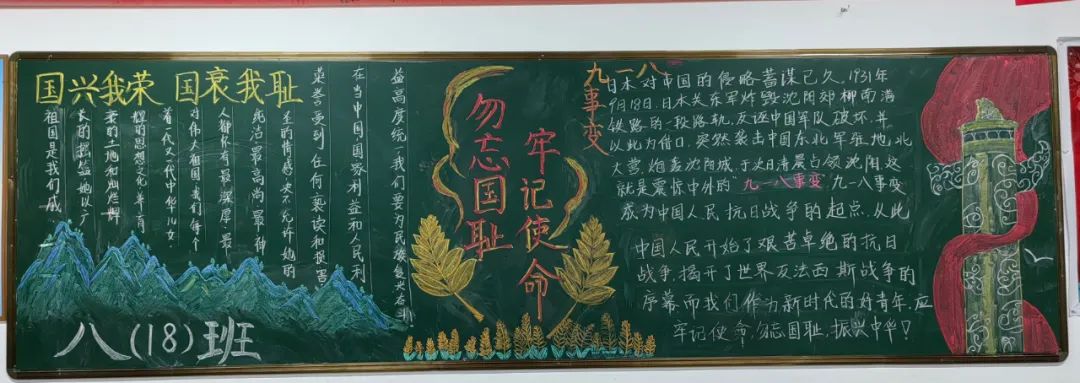 国兴我荣 国衰我耻
祖国是我们成
长的摇篮她以广
袤的土地和灿烂辉
煌的思想文化孕育
着一代又一代中华儿女
对伟大祖国我们每个
人都怀有最深厚最
纯洁最高尚最神
圣的情感决不允许她的
荣誉受到任何亵读和损害
在当中国国家利益和人民利
益高度统一我们要为民族复兴奋斗
八(18)班
勿忘国耻
牢记使命
九一八
事变
日本对中国的侵略蓄谋已久,1931年
9月18日,日本关东军炸毁沈阳郊柳南满
铁路的一段路轨,反诬中国军队破坏,并
以此为借口,突然袭击中国东北军驻地北
大营,炮轰沈阳城,于次日清晨占领沈阳,这
就是震惊中外的"九一八事变"九一八事变
成为中国人民抗日战争的起点,从此
中国人民开始了艰苦卓绝的抗日
战争,揭开了世界反法西斯战争的
序幕而我们作为新时代的好青年,应
牢记使命,勿忘国耻,振兴中华!